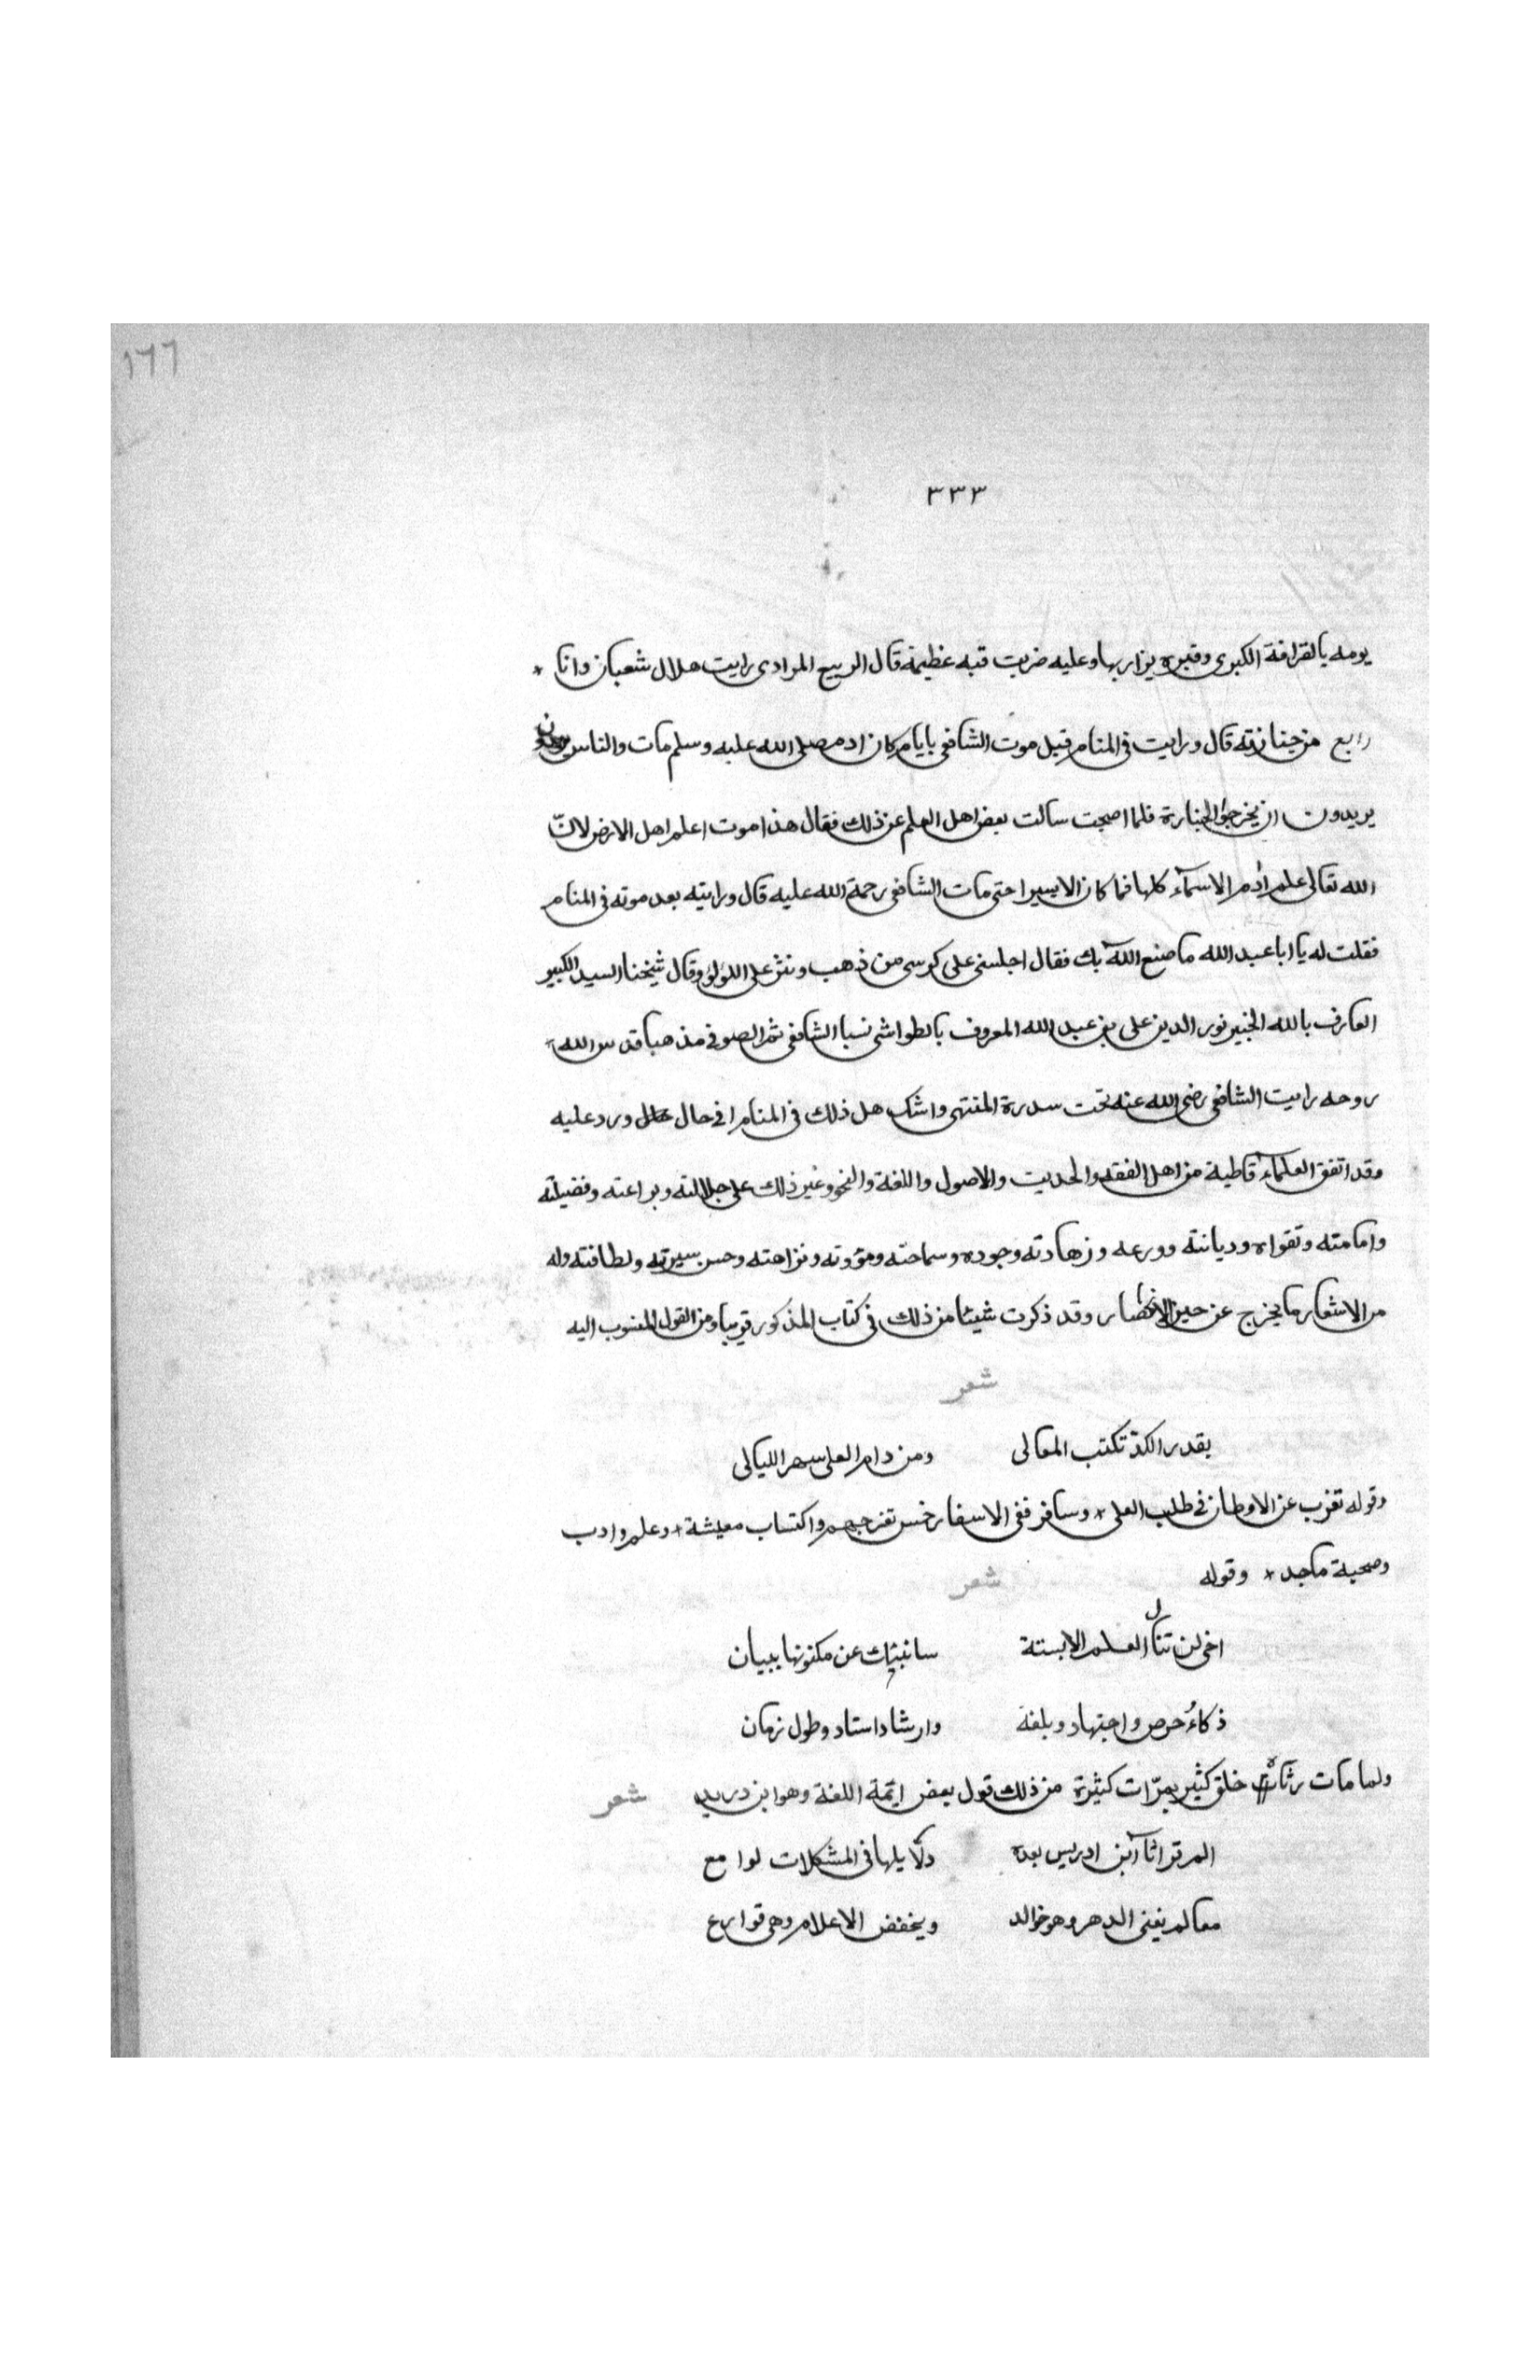 ١٦٦
٣٣٣
يومه بالقرافة الكبرى وقبره يزار بها وعليه ضربت قبه عظيمة قال الربيع المرادى رايت هلال شعبان وانا *
رابع من جنازته قال ورايت فى المنام قبل موت الشافعى بايام كان ادم صلى الله عليه وسلم مات والناس
يريدون ان يخرجوا الجنازة فلما اصبحت سالت بعض اهل العلم عن ذلك فقال هذا موت اعلم اهل الارض لانّ
الله تعالى علم ادم الاسمآء كلها فما كان الا يسيرا حتى مات الشافعى رحمة الله عليه قال ورايته بعد موته فى المنام
فقلت له يا ابا عبد الله ما صنع الله بك فقال اجلسنى على كرسى من ذهب ونثر على اللؤلؤ وقال شيخنا السيد الكبير
العارف بالله الخبير نور الدين على بن عبد الله المعروف بالطواشى نسبا الشافعى ثم الصوفى مذهبا قدس الله
روحه رايت الشافعى رضى الله عنه تحت سدرة المنتهى واشك هل ذلك فى المنام ا فى حال ورد عليه
وقد اتفق العلماء قاطبة من اهل الفقه والحديت والاصول واللغة والنحو وغير ذلك على جلالته وبراعته وفضيلته
وامامته وتقواه وديانته وورعه وزهادته وجوده وسماحته ومروته ونزاهته وحسن سيرته ولطافته وله
من الاشعار ما يخرج عن حيز الانحصار وقد ذكرت شيئا من ذلك فى كتاب المذكور قريبا ومن القول المنسوب اليه
شعر
بقدر الكدّ تكتب المعالى ومن دام العلى سهر الليالى
وقوله تغرب عن الاوطان فى طلب العلى * وسافر ففى الاسفار خمس تفرج هم واكتساب معيشة * وعلم وادب
وصحبة ماجد * وقوله شعر
اخى لن تنال العلم الا بستة سانبئك عن مكنونها ببيان
ذكاءُ حرص واجتهاد وبلغة وارشاد استاد وطول زمان
ولما مات رثاه خلق كثير بمرّات كثيرة من ذلك قول بعض ايمّة اللغة وهو ابن دريد شعر
الم تر اثآر ابن ادريس بعده دلآيلها فى المشكلات لوامع
معالم يفنى الدهر وهو خوالد ويخفض الاعلام وهى قوارع